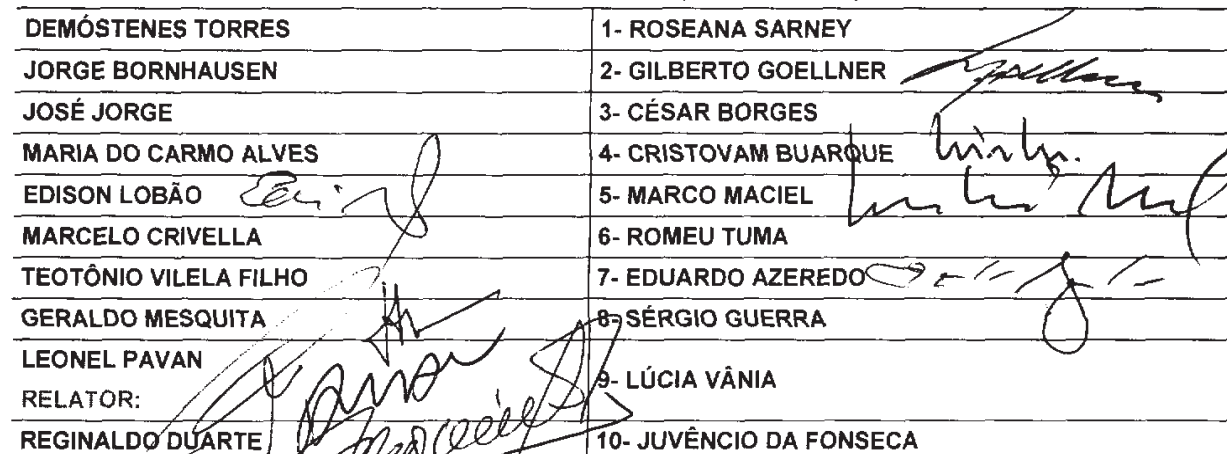 DEMÓSTENES TORRES 1- ROSEANA SARNEY
JORGE BORNHAUSEN 2- GILBERTO GOELLNER
JOSÉ JORGE 3- CÉSAR BORGES
MARIA DO CARMO ALVES 4- CRISTOVAM BUARQUE
EDISON LOBÃO 5- MARCO MACIEL
MARCELO CRIVELLA 6- ROMEU TUMA
TEOTÔNIO VILELA FILHO 7- EDUARDO AZEREDO
GERALDO MESQUITA 8- SÉRGIO GUERRA
LEONEL PAVAN
RELATOR: 9- LÚCIA VÂNIA
REGINALDO DUARTE 10- JUVÊNCIO DA FONSECA